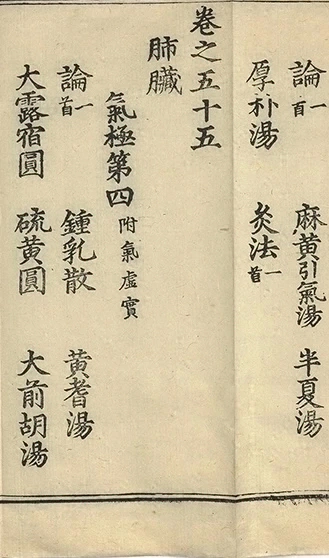 論一百 麻黄引氣湯 半夏湯
厚朴湯 灸法一首
卷之五十五
肺臟
氣極第四附氣虛實
論一首 鍾乳散 黄耆湯
大露宿圓 硫黄圓 大前胡湯